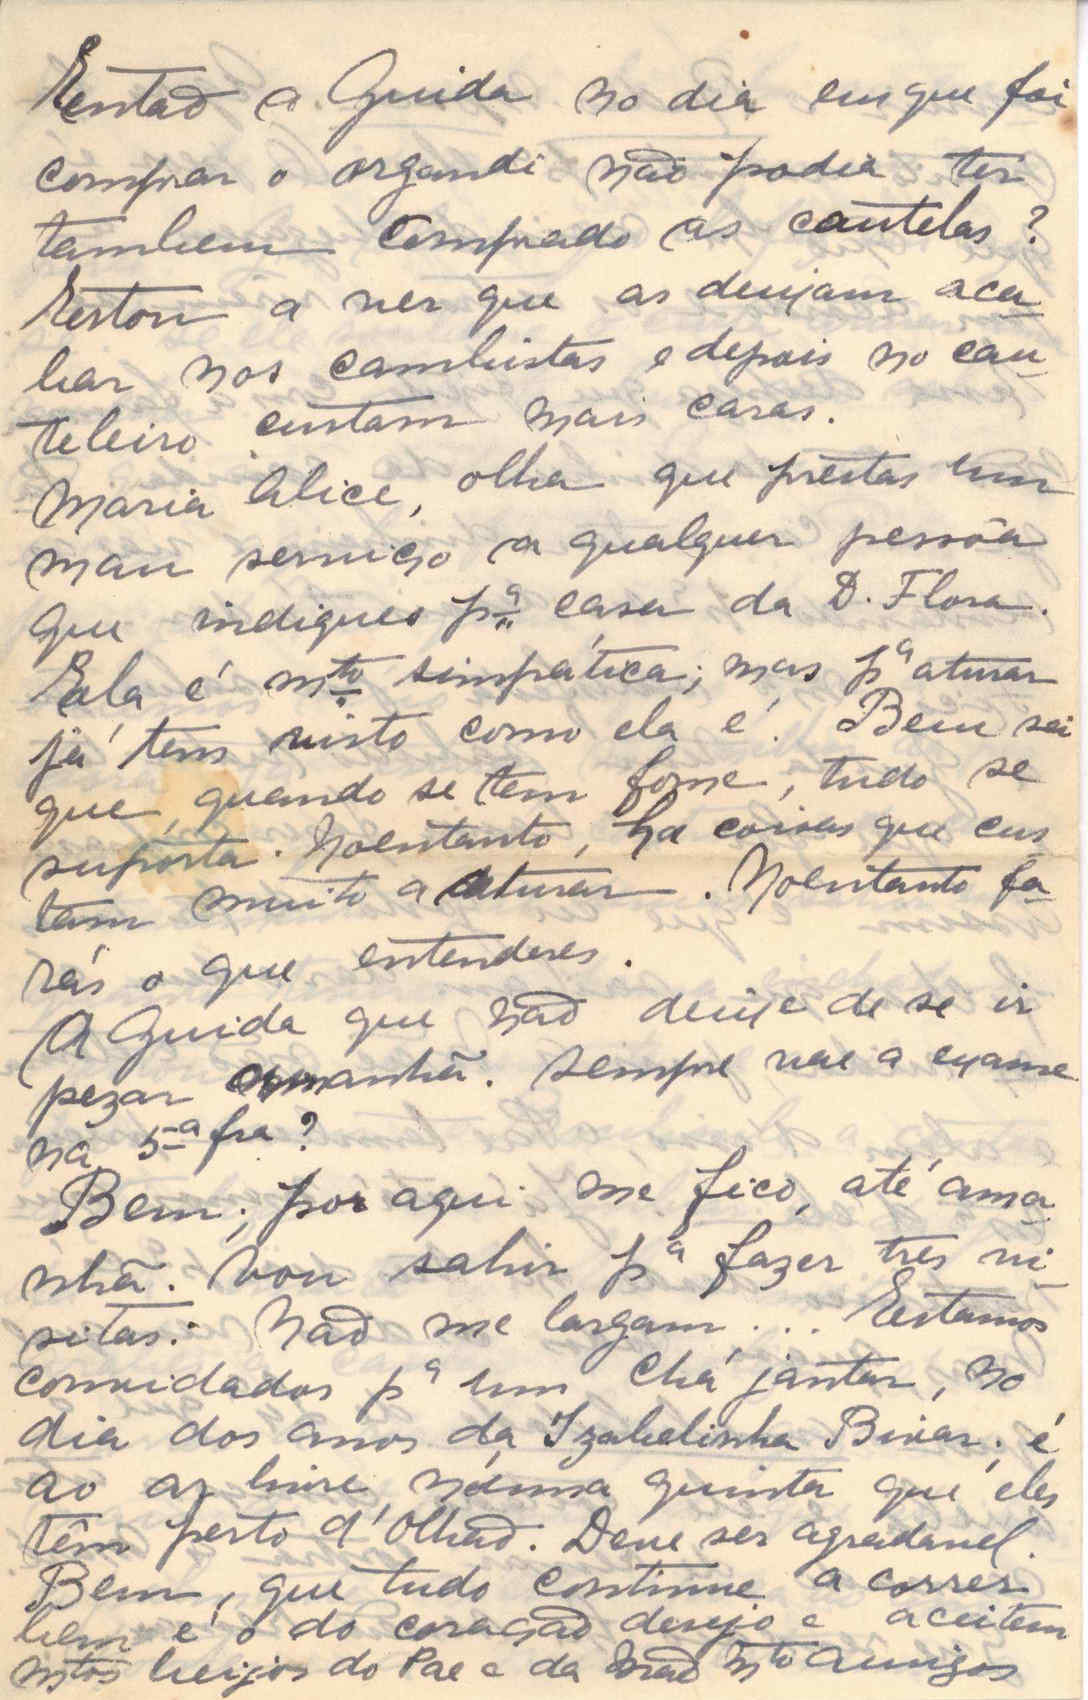 Então a Guida no dia em que foi
comprar o organdi não podia ter
tambem comprado as cautelas?
Estou a ver que as deixam aca-
bar nos cambistas e depois no cau-
teleiro custam mais caras.
Maria Alice, olha que prestas um
mau serviço a qualquer pessôa
que indiques pª casa da D. Flora.
Ela é mto simpática; mas pª aturar
já tens visto como ela é. Bem sei
que, quando se tem fome, tudo se
suporta. Noentanto, ha coisas que cus-
tam muito a aturar. Noentanto fa-
rás o que entenderes.
A Guida que não deixe de se ir
pezar amanhã. Sempre vae a exame
na 5ª fra?
Bem, por aqui me fico, até ama-
nhã. Vou sahir pª fazer tres vi-
sitas. Não me largam... Estamos
convidados pª um chá jantar, no
dia dos anos da Izabelinha Bivar; é
ao ar livre, n'uma quinta que eles
têm perto d'Olhão. Deve ser agradavel.
Bem, que tudo continue a correr
bem é o do coração desejo e aceitem
mtos beijos do Pae e da Mãe Mto Amigos